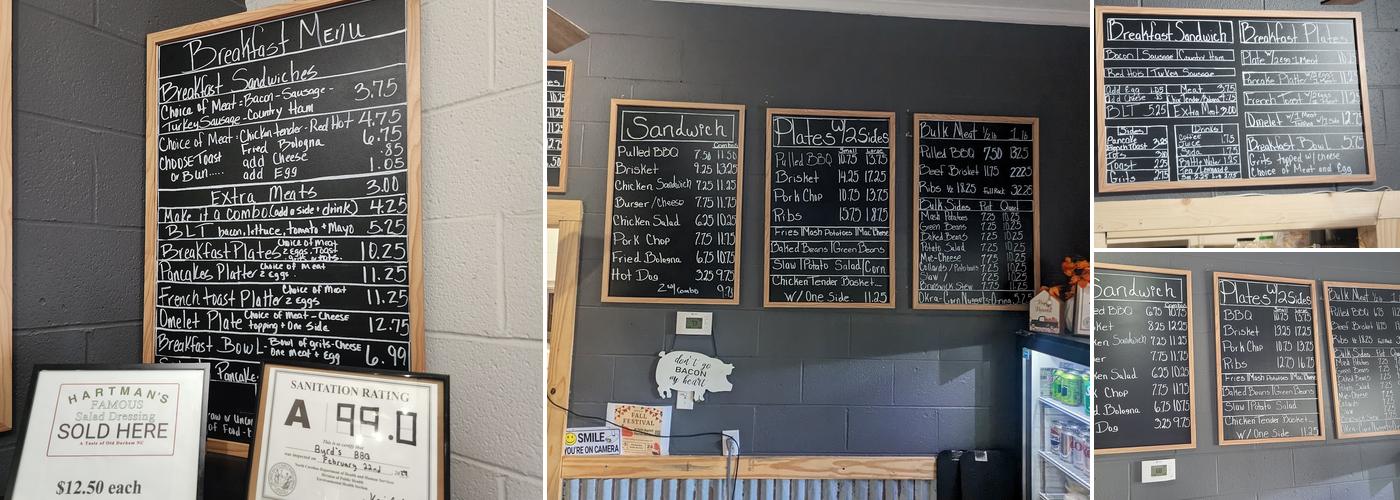 Breakfast Menu
Breakfast Sandwiches
Choice of Meat: Bacon - Sausage -
Turkey Sausage - Country Ham 3.75
Choice of Meat - Chicken tender - Red Hot 4.75
Fried Bologna 6.75
Choose Toast add Cheese .85
or Bun..... add Egg 1.05
Extra Meats 3.00
Make it a combo (add a side + drink) 4.25
BLT bacon, lettuce, tomato + Mayo 5.25
Breakfast Plates Choice of meat 2 eggs. Toast 10.25
Pancakes Platter Choice of Meat 2 Eggs. 11.25
French toast Platter Choice of Meat 2 eggs 11.25
Omelet Plate Choice of Meat - Cheese topping + One Side 12.75
Breakfast Bowl - Bowl of grits - Cheese One meat + Egg 6.99
Pancake
HARTMAN'S
FAMOUS
Salad Dressing
SOLD HERE
A Taste of Old Durham NC
$12.50 each
SANITATION RATING
A 99.0
This is to certify that
Byrd's BBQ
was inspected on February 22nd
North Carolina Department of Health and Human Services
Division of Public Health
Environmental Health Section
Sandwich
Combo
Pulled BBQ 7.50 11.50
Brisket 9.25 13.25
Chicken Sandwich 7.25 11.25
Burger/Cheese 7.75 11.75
Chicken Salad 6.25 10.25
Pork Chop 7.75 11.75
Fried Bologna 6.75 10.75
Hot Dog 3.25 9.75
2 w/ Combo
Plates w/2 Sides
Small Large
Pulled BBQ 10.75 13.75
Brisket 14.25 17.25
Pork Chop 10.75 13.75
Ribs 15.75 18.75
Fries | Mash Potatoes | Mac Cheese
Baked Beans | Green Beans
Slaw | Potato Salad | Corn
Chicken Tender Basket...
w/ One Side. 11.25
Bulk Meat ½ lb 1 lb
Pulled BBQ 7.50 13.25
Beef Brisket 11.75 22.25
Ribs ½ 18.25 Full Rack 32.25
Bulk Sides Pint Quart
Mash Potatoes 7.25 10.25
Green Beans 7.25 10.25
Baked Beans 7.25 10.25
Potato Salad 7.25 10.25
Mac-Cheese 7.75 10.25
Slaw
Brunswick Stew 7.75 11.25
Okra - Corn Nuggets
don't go
BACON
my heart
FALL
FESTIVAL
SMILE
YOU'RE ON CAMERA
Breakfast Sandwich
Bacon | Sausage | Country Ham
Red Hots | Turkey Sausage
Add Egg 1.05 Meat 3.75
Add Cheese
BLT 5.25 Extra Meat 3.00
Sides
Pancake
French Toast
Tots
Toast 2.25
Grits 2.75
Drinks
Coffee
Juice 1.75
Soda 1.75
Bottle Water 1.25
Tea/Lemonade
Breakfast Plates
Plate w/ 2 egg + 1 Meat
Pancake Platter
French Toast
Omelet w/ 1 Meat
Breakfast Bowl 5.75
Grits topped w/ cheese
Choice of Meat and Egg
Sandwich
Combo
ed BBQ 6.75 10.75
ket 8.25 12.25
ken Sandwich 7.25 11.25
7.75 11.75
en Salad 6.25 10.25
Chop 7.75 11.75
d Bologna 6.75 10.75
Dog 3.25 9.75
Plates w/2 Sides
BBQ 10.75 13.75
Brisket 13.25 17.25
Pork Chop 10.25 13.25
Ribs 12.75 16.75
Fries | Mash Potatoes | Mac Cheese
Baked Beans | Green Beans
Slaw | Potato Salad
Chicken Tender Basket...
w/ One Side 11.25
Bulk Meat ½ lb
Pulled BBQ
Beef Brisket
Ribs
Bulk Sides
Mash Potatoes
Green Beans
Baked Beans
Potato Salad